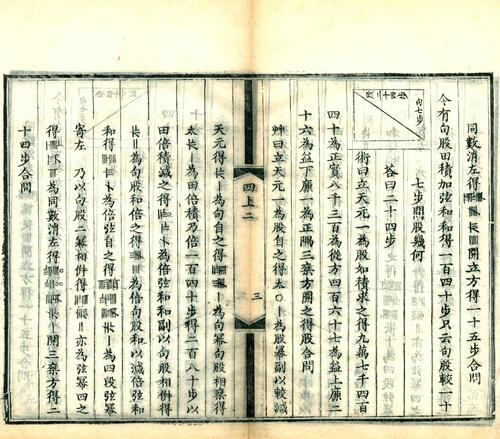 同數消左得開立方得一十五步合問
今有句股田積加弦和和得一百四十步只云句股較一十
七步問股幾何
句七步
答曰二十四步
術曰立天元一為股如積求之得九萬七千四百
四十為正實八千三百為從方四百六十七為益上廉二
十六為益下廉一為正隅三乘方開之得股合問
艸曰立天元一為股自之得太〇一為股冪副以較減
四上二
三
天元得為句自之得為句冪句股相乘得
太為田倍積乃倍一百四十步得二百八十步以
田倍積減之得為倍弦和和副以句股相併得
為句股和倍之得為倍句股和以減倍弦和
和得為倍弦自之得為四段弦冪
寄左 乃以句股二冪相併得亦為弦冪四之
得為同數消左得開三乘方得二
十四步合問